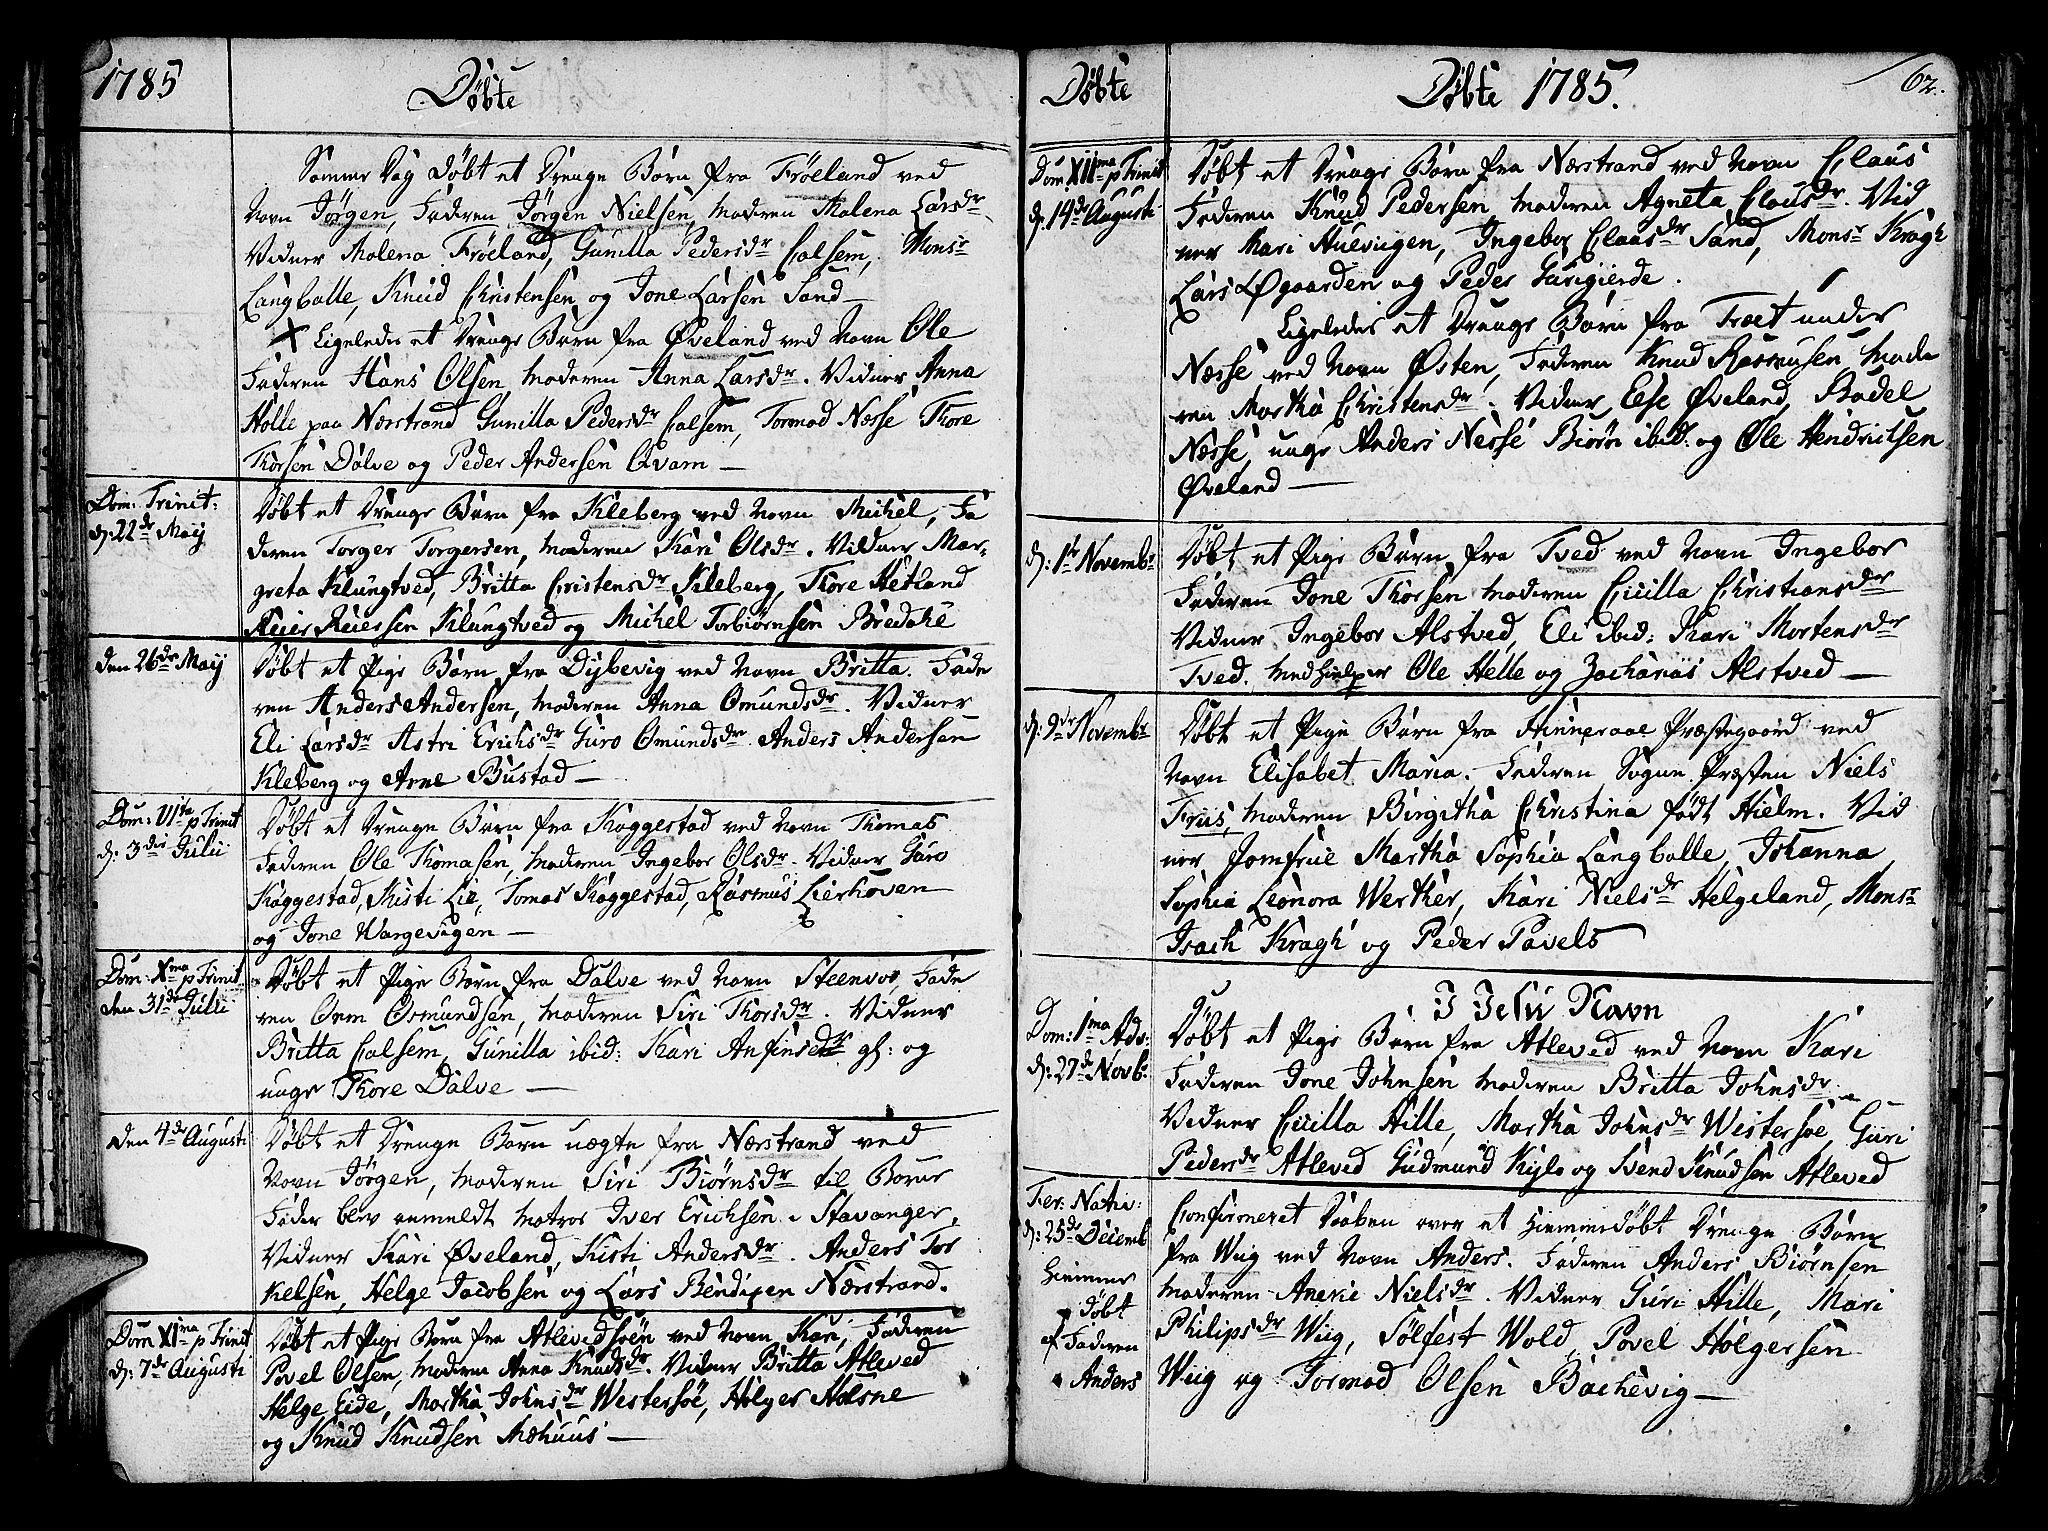 1785
Döbte
Samme Dag döbt et Drenge Barn fra Frölland ved
Navn Jörgen, Faderen Jörgen Nielsen, Moderen Malena Larsdr.
Vidner Malena Frölland, Gunilla Pedersdr Calsem, Monsr
Langballe, Knud Christensen og Jone Larsen Sand —
X Ligeledes et Drenge Barn fra Øveland ved Navn Ole
Faderen Hans Olsen, Moderen Anna Larsdr. Vidner Anna
Holle paa Nærstrand Gunilla Pedersdr Calsem, Tormod Næsse Thore
Thorsen Dalve og Peder Andersen Qvam —
Dom: Trinit:
d: 22de Maij
Döbt et Drenge Barn fra Kleberg ved Navn Michel, Fa
deren Torger Torgersen, Moderen Kari Olsdr. Vidner Mar-
greta Klungtved, Britta Cristensdr Kleberg, Thore Hetland
Reier Reiersen Klungtved og Michel Torbiörnsen Bredahl
den 26de Maij
Döbt et Pige Barn fra Dybevig ved Navn Britta. Fade
ren Anders Andersen, Moderen Anna Omundsdr. Vidner
Eli Larsdr Astri Erichsdr Guro Omundsdr Anders Andersen
Kleberg og Arne Bustad —
Dom: VIta p Trinit
d: 3die Julii
Döbt et Drenge Barn fra Skaggestad ved Navn Thomas
Faderen Ole Thomasen, Moderen Ingebor Olsdr. Vidner Guro
Skaggestad, Kisti Lie, Tomas Skaggestad, Rasmus Lierhoven
og Jone Wargevigen —
Dom: Xma p Trinit
den 31de Julii
Döbt et Pige Barn fra Dalve ved Navn Steenvor, Fade
ren Orm Osmundsen, Moderen Siri Thorsdr. Vidner
Britta Calsem, Gunilla ibid: Kari Anfinsdr gl: og
unge Thore Dalve —
den 4de Augusti
Döbt et Drenge Barn uægte fra Nærstrand ved
Navn Jörgen, Moderen Siri Biörnsdr til Barne
Fader blev anmeldt Matros Iver Erichsen i Stavanger.
Vidner Kari Øveland, Kisti Andersdr. Anders Tor
kelsen, Helge Jacobsen og Lars Bendixen Nærstrand.
Dom XIma p Trinit
d: 7de Augusti
Döbt et Pige Barn fra Atlevedsöen ved Navn Kari, Faderen
Povel Olsen, Moderen Anna Knudsdr. Vidner Britta Atleved
Helge Eide, Martha Johnsdr Westersöe, Holger Halsne
og Knud Knudsen Mæhuus —
Döbte
Döbte 1785.
62.
Dom XIIma p Trinit
d: 14de Augusti
Döbt et Drenge Barn fra Nærstrand ved Navn Claus
Faderen Knud Pedersen Moderen Agneta Clausdr. Vid
ner Mari Huevigen, Ingebor Claasdr Sand, Monsr Kragh
Lars Øgaarden og Peder Garigierde.
Ligeledes et Drenge Barn fra Træt under
Næsse ved Navn Østen, Faderen Knud Rasmusen Mode
ren Martha Christensdr. Vidner Else Øveland, Bodel
Næsse, unge Anders Nesse Biörn ibid: og Ole Hendricksen
Øveland —
d: 1te Novembr
Döbt et Pige Barn fra Tved ved Navn Ingebor
Faderen Jone Thorsen Moderen Cicilla Christiansdr
Vidner Ingebor Alstved, Eli ibid: Kari Mortensdr
Tved. Medhielper Ole Helle og Zacharias Alstved —
d: 9de Novembr
Döbt et Pige Barn fra Hinneraae Præstegaard ved
Navn Elisabet Maria. Faderen Sogne Præsten Niels
Friis, Moderen Birgitha Christina föдt Hielm. Vid
ner Jomfrue Martha Sophia Langballe, Johanna
Sophia Leonora Werther, Kari Nielsdr Helgeland, Monsr
Isach Kragh og Peder Pavels
I Jesu Navn
Dom: 1ma Adv:
d: 27de Novb:
Döbt et Pige Barn fra Atleved ved Navn Kari
Faderen Jone Johnsen Moderen Britta Johnsdr.
Vidner Cicilla Hille, Martha Johnsdr Westersöe, Guri
Pedersdr Atleved Gudmund Kiglo og Svend Knudsen Atleved
Fer: Nativ:
d: 25de Decemb
Hiemme
döbt
af Faderen
Anders
Confirmeret Daaben over et Hiemmedöbt Drenge Barn
fra Wiig ved Navn Anders. Faderen Anders Biörnsen
Moderen Anerie Nielsdr. Vidner Guri Hille, Mari
Philipsdr Wiig, Sölfest Wold, Povel Holgersen
Wiig og Tormod Olsen Bachevig —